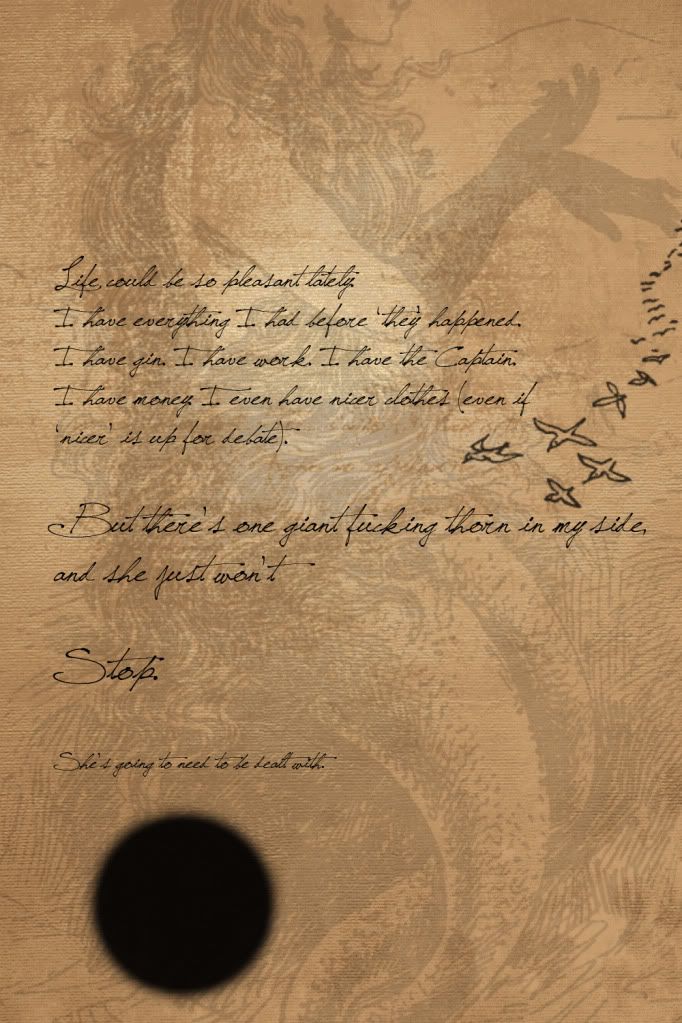 Life, could be so pleasant lately.
I have everything I had before 'they' happened.
I have gin. I have work. I have the Captain.
I have money. I even have nicer clothes (even if
'nicer' is up for debate).
But there's one giant fucking thorn in my side,
and she just won't
Stop.
She's going to need to be dealt with.